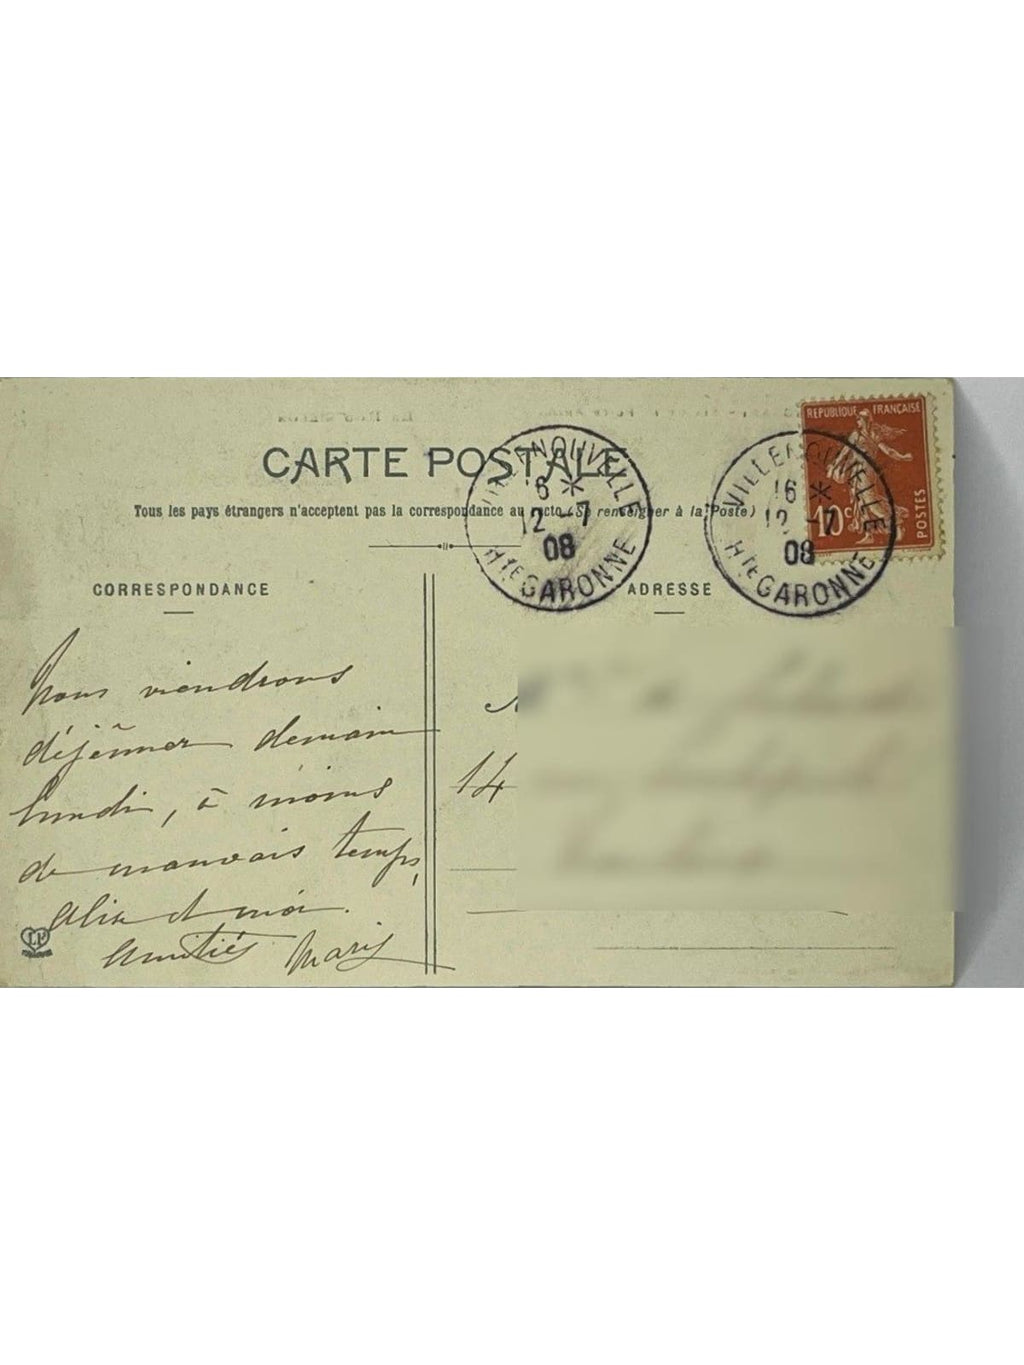 CARTE POSTALE
Tous les pays étrangers n'acceptent pas la correspondance au recto (Se renseigner à la Poste)
CORRESPONDANCE
ADRESSE
REPUBLIQUE FRANÇAISE
10c
POSTES
VILLENOUVELLE
16 *
12 -7
08
Hte GARONNE
VILLENOUVELLE
16 *
12 -7
08
Hte GARONNE
Nous viendrons
déjêuner demain
lundi, à moins
de mauvais temps,
Alix et moi.
Amitiés Marie
14